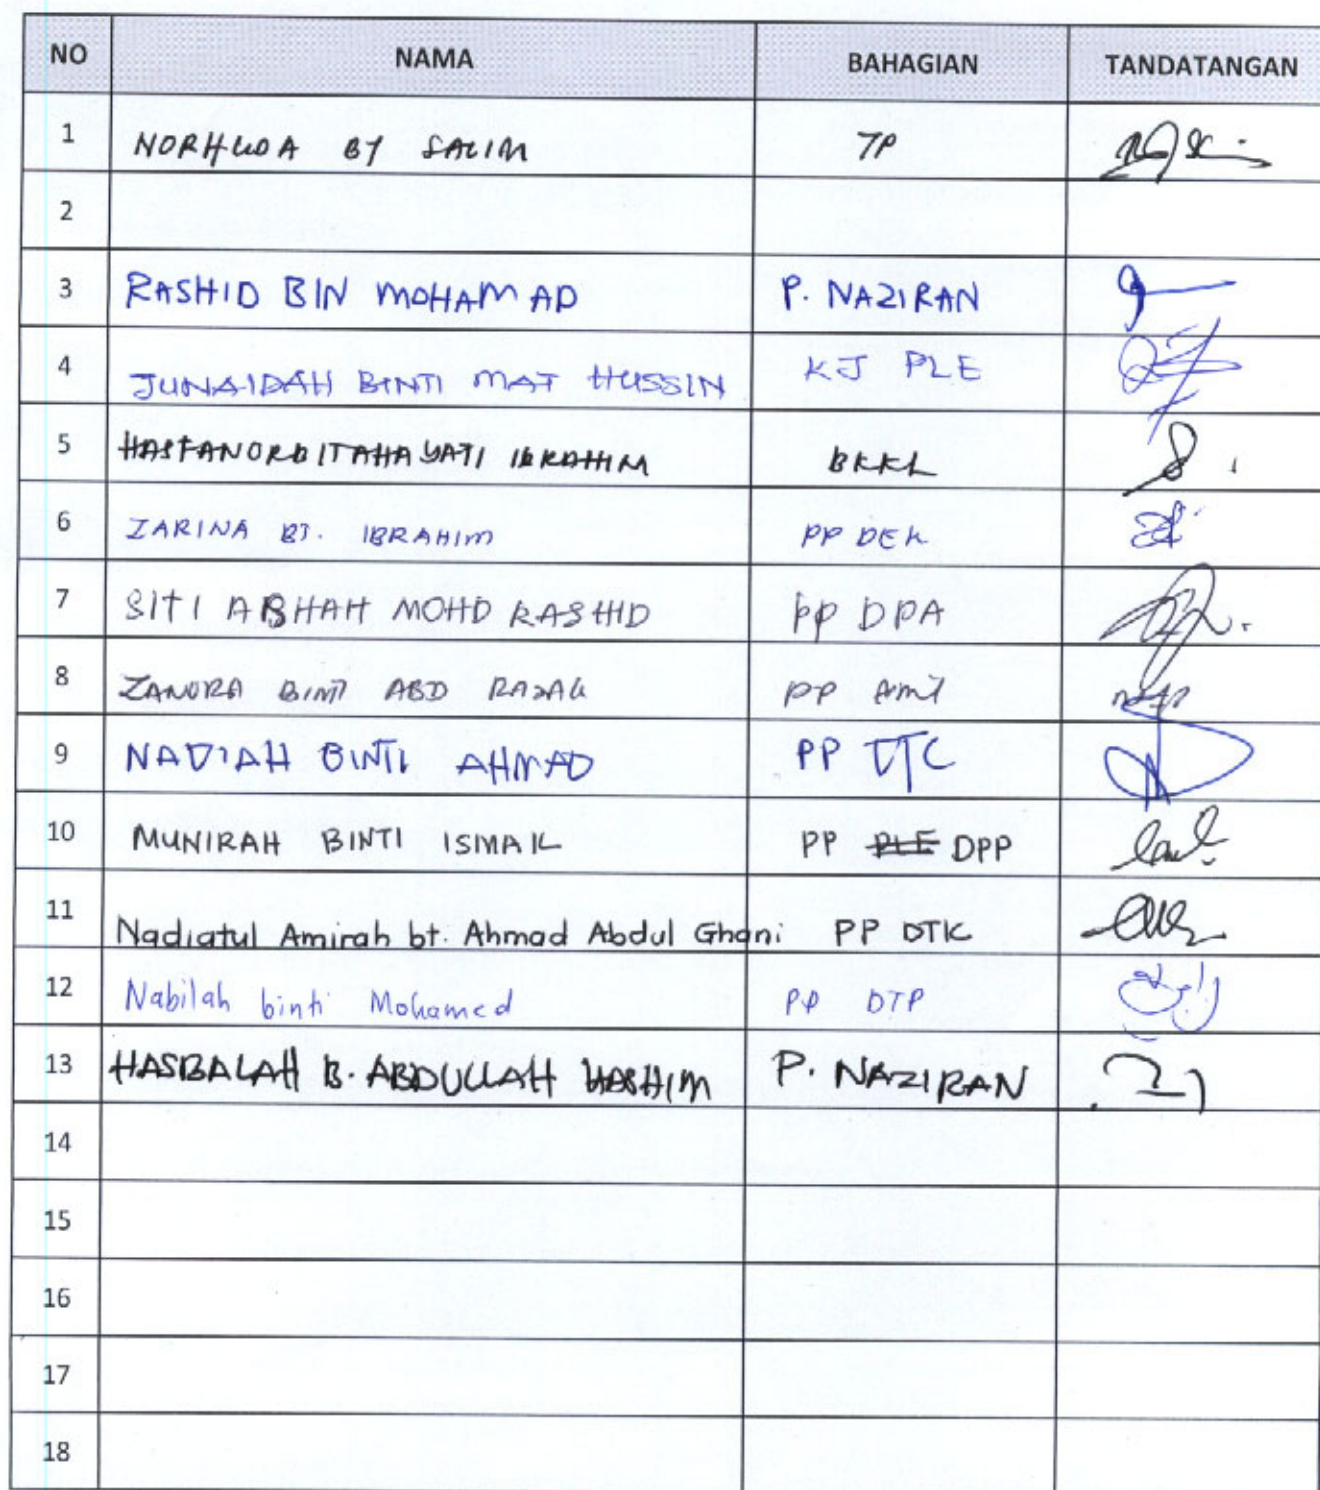 NO NAMA BAHAGIAN TANDATANGAN
1 NORHUDA BT SALIM TP
2
3 RASHID BIN MOHAMAD P. NAZIRAN
4 JUNAIDAH BINTI MAT HUSSIN KJ PLE
5 IBRAHIM BKKL
6 ZARINA BT. IBRAHIM PP DEK
7 SITI MOHD RASHID PP DPA
8 ZANORA BINTI ABD RAZAK PP
9 NADIAH BINTI AHMAD PP DTC
10 MUNIRAH BINTI ISMAIL PP PLE DPP
11 Nadiatul Amirah bt. Ahmad Abdul Ghani PP DTK
12 Nabilah binti Mohamed PP DTP
13 HASBALAH B. ABDULLAH HASHIM P. NAZIRAN
14
15
16
17
18